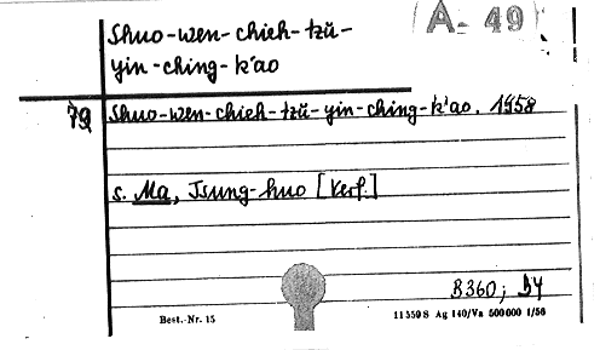 A- 49
Shuo-wen-chieh-tzŭ-
yin-ching-k'ao
79 Shuo-wen-chieh-tzŭ-yin-ching-k'ao. 1958
s. Ma, Tsung-huo [Verf.]
B360; 54
Best.-Nr. 15 11559 8 Ag 140/Va 500000 1/56